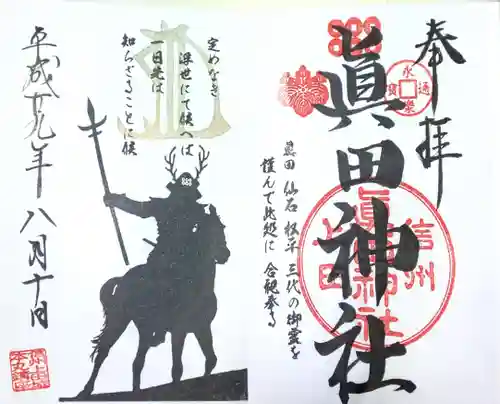 奉拝
眞田神社
眞田 仙石 松平 三代の御霊を
謹んで此処に 合祀奉る
信州
上田
眞田神社
永
通
定めなき
浮世にて候へば
一日先は
知らざることに候
平成廿九年 八月十日